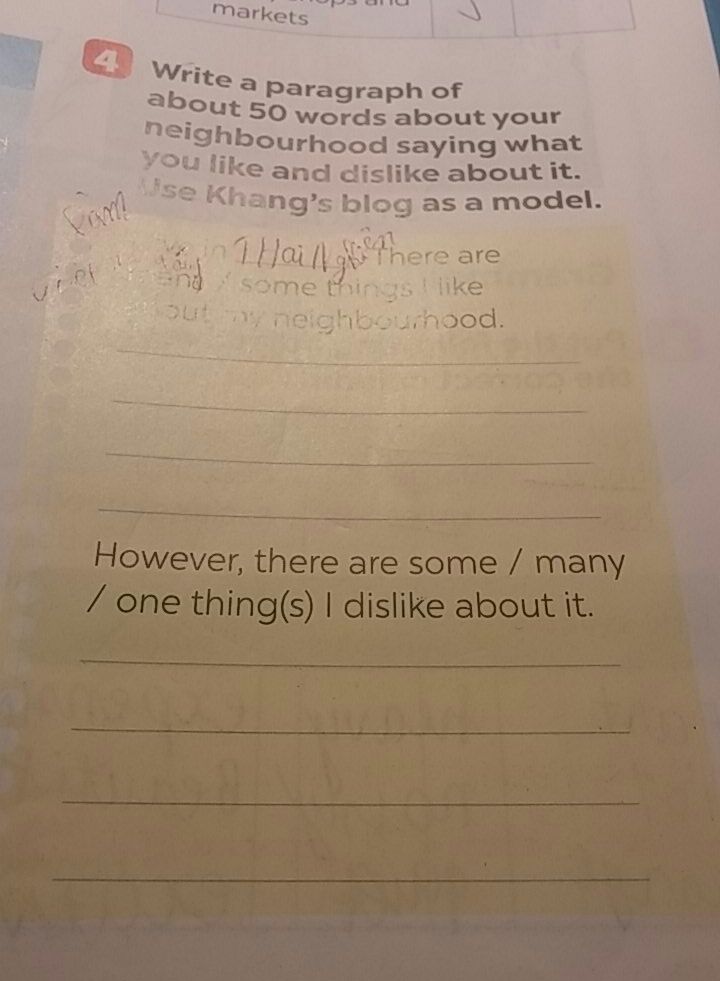 markets
4 Write a paragraph of
about 50 words about your
neighbourhood saying what
you like and dislike about it.
Use Khang's blog as a model.
in There are
some things I like
my neighbourhood.
However, there are some / many
/ one thing(s) I dislike about it.